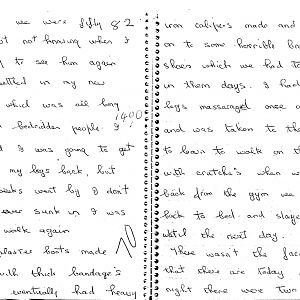 we were fifty & 2
but not knowing when I
to see him again
settled in my new
which was all long
1400
bedridden people I
I was going to get
my legs back, but
weeks went by I don't
ever sunk in I was
walk again
10
plaster boots made
with thick bandage's
eventually had heavy
iron calipers made and
on to some horrible
shoes which we had to
in them days. I had
legs massaged once a
and was taken to the
to learn to walk on
with crutche's when w
back from the gym we
back to bed and stayed
until the next day.
There wasn't the fac
that there are today
night there were two